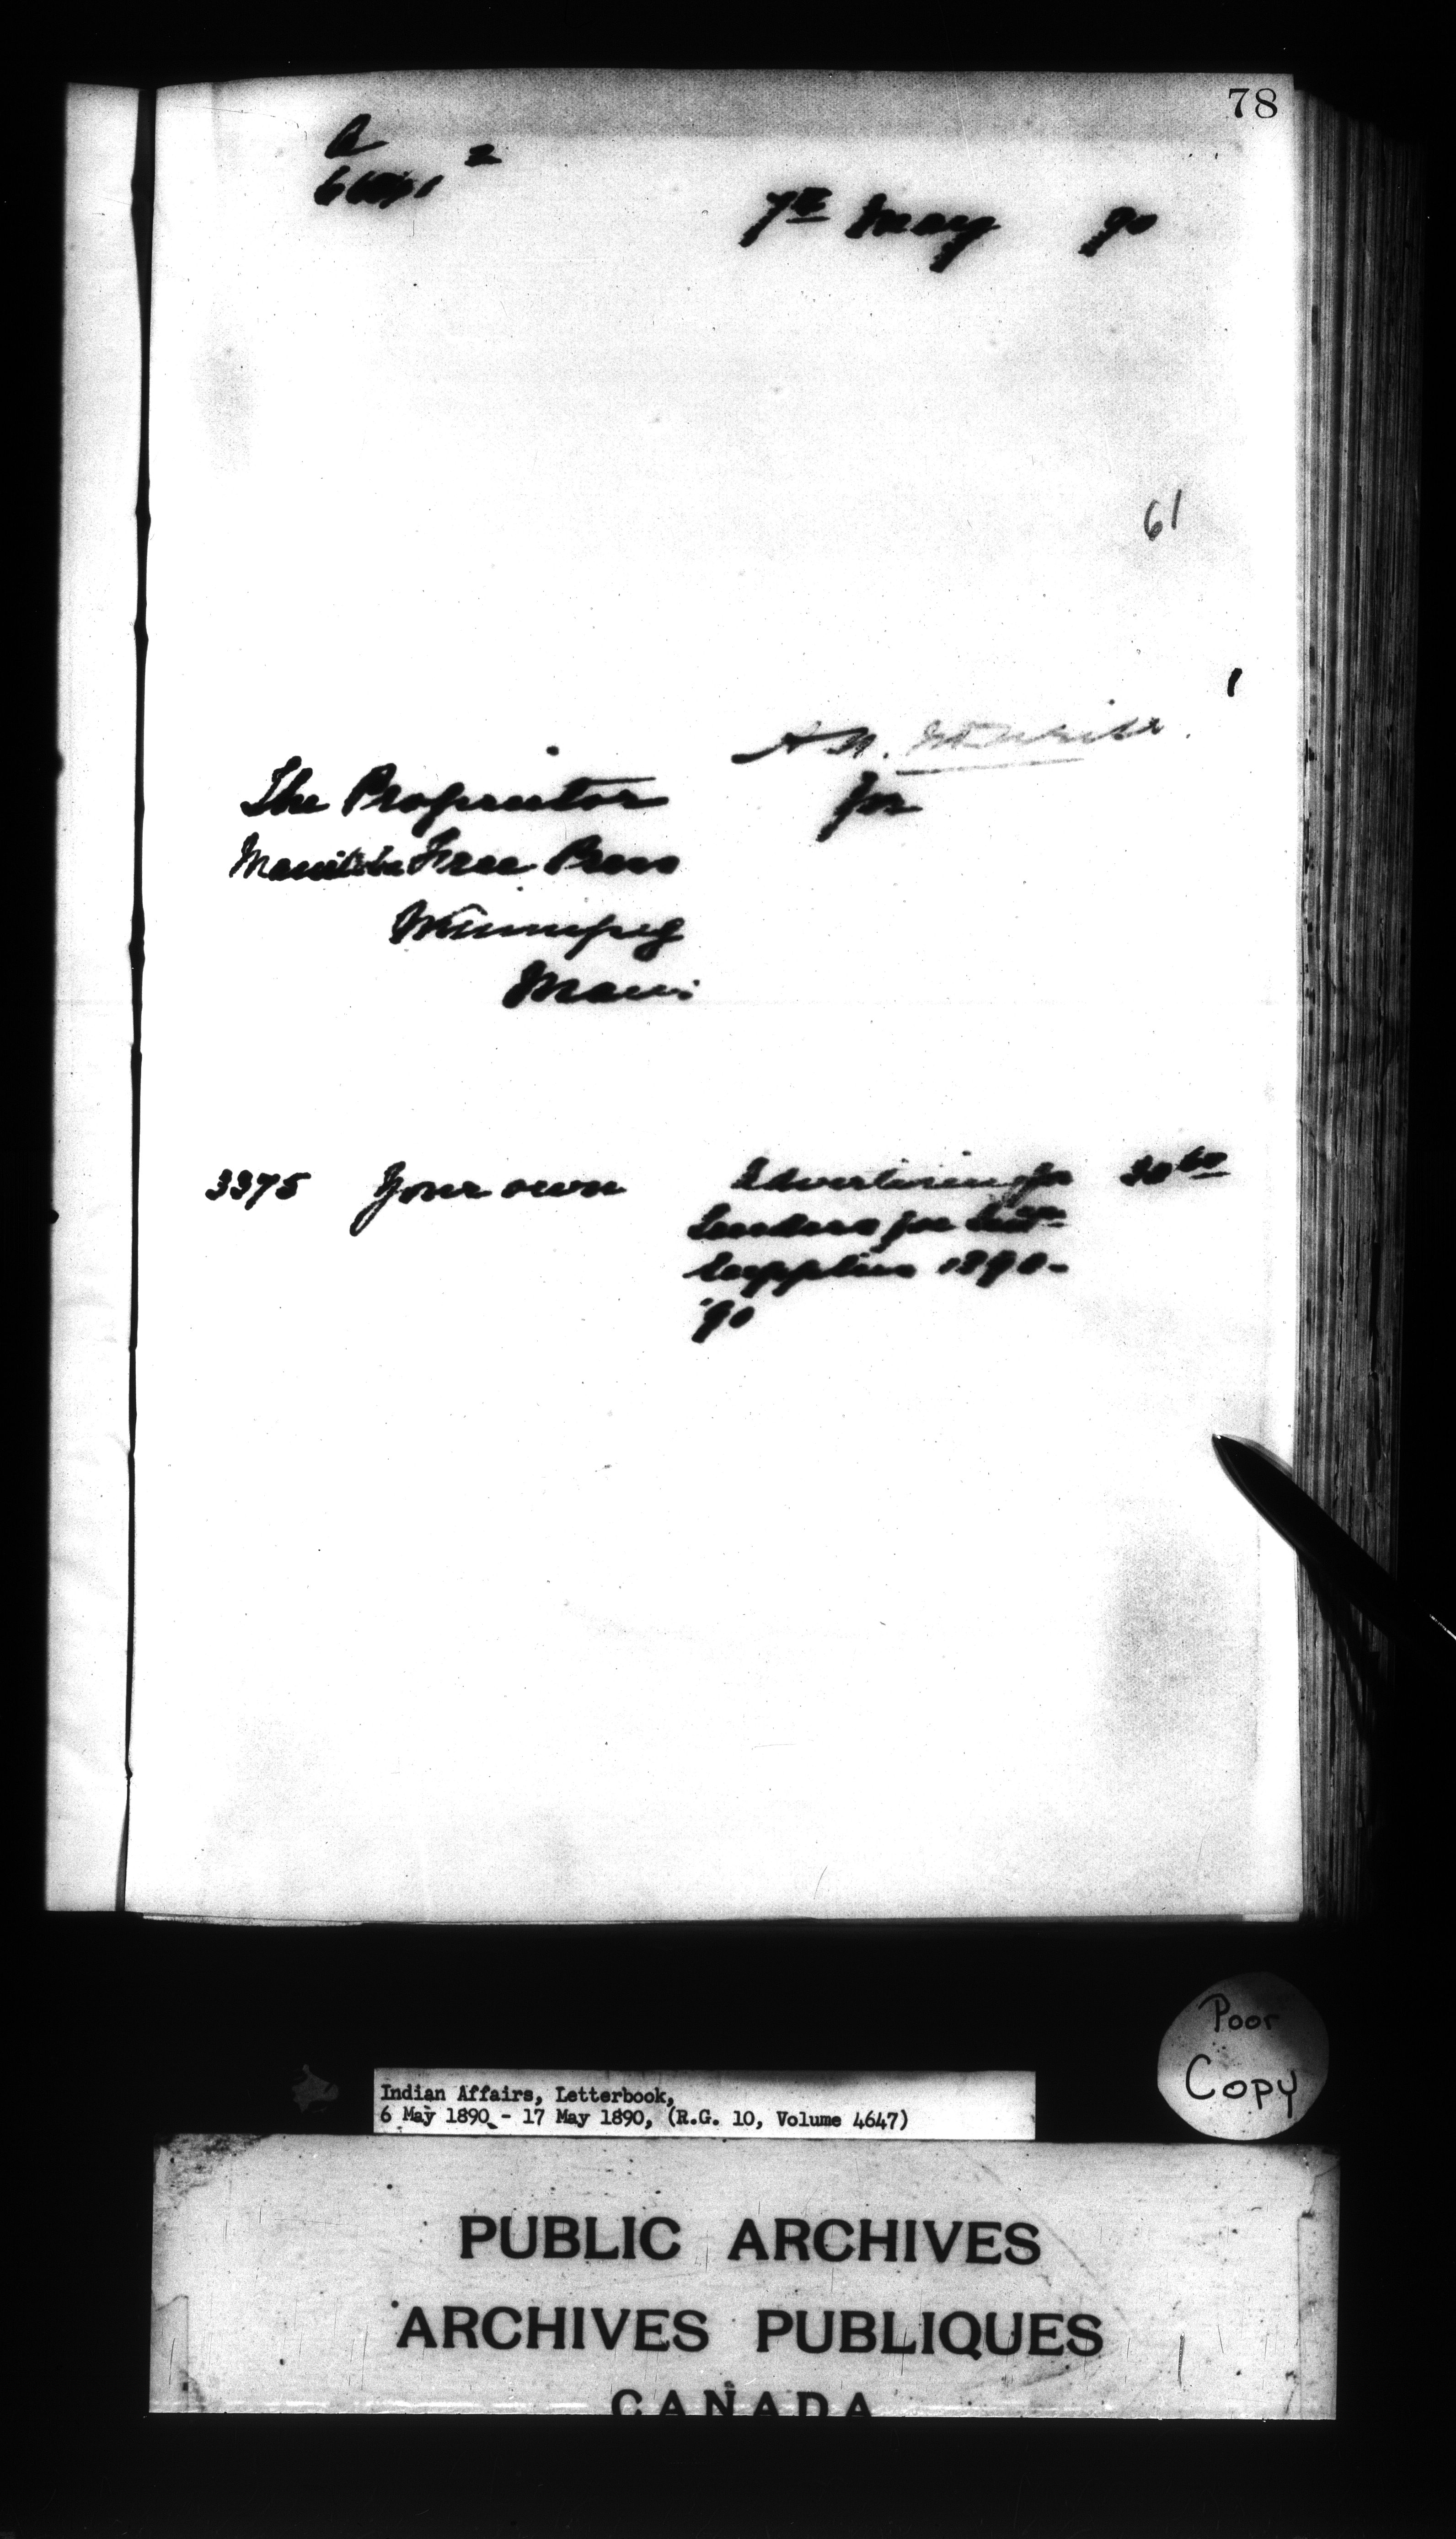 78
7th May 90
61
The Proprietor
for
Manitoba Free Press
Winnipeg
Man:
3375 Your own Advertising for
Tenders for
Supplies 1890-
90
Poor
Copy
Indian Affairs, Letterbook,
6 May 1890 - 17 May 1890, (R.G. 10, Volume 4647)
PUBLIC ARCHIVES
ARCHIVES PUBLIQUES
CANADA